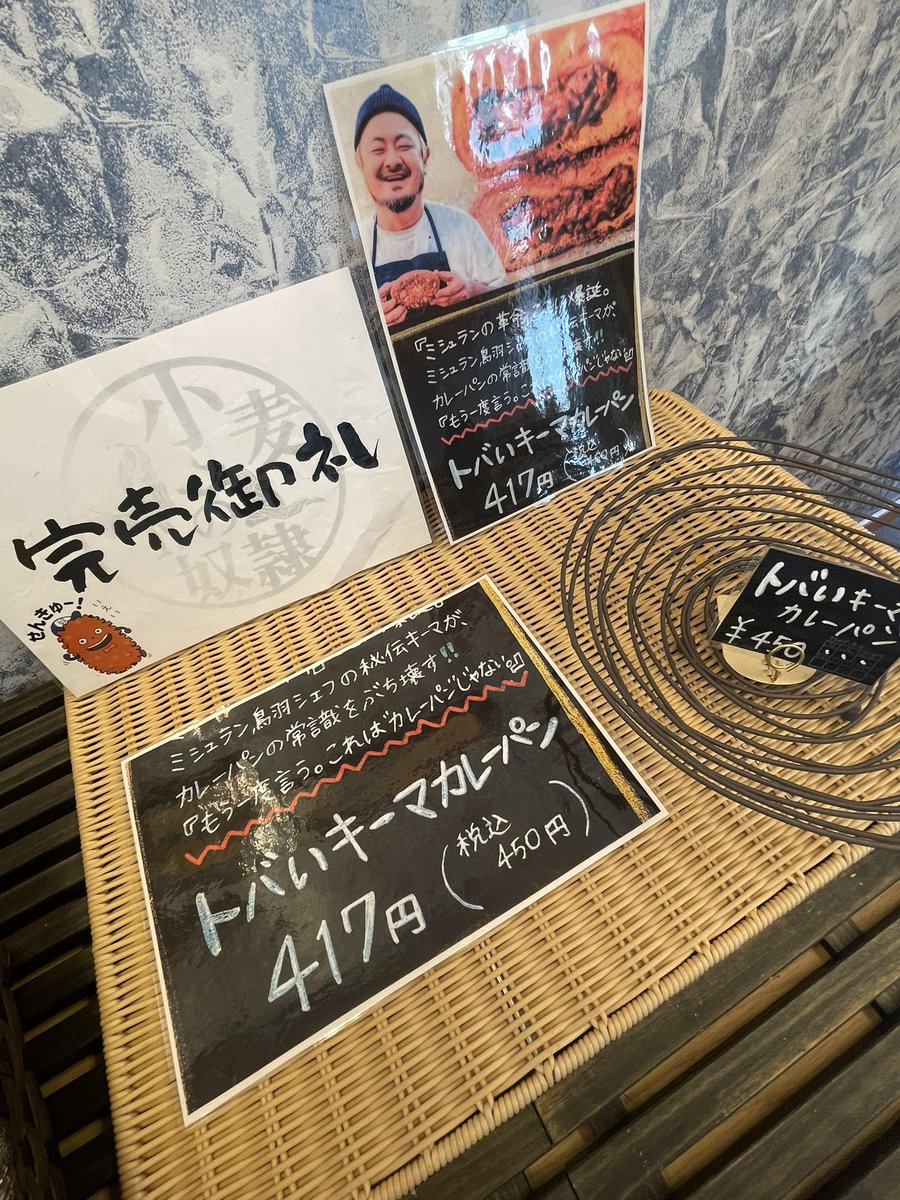 小麦
奴隷
完売御礼
せんきゅー!
『ミシュランの革命
爆誕。
ミシュラン鳥羽シェフの秘伝キーマが、
カレーパンの常識をぶち壊す!!
『もう一度言う。
パンじゃない』
トバいキーマカレーパン
417円(税込450円)
トバいキーマ
カレーパン
¥450
ミシュラン鳥羽シェフの秘伝キーマが、
カレーパンの常識をぶち壊す!!
『もう一度言う。これはカレーパンじゃない』
トバいキーマカレーパン
417円(税込450円)